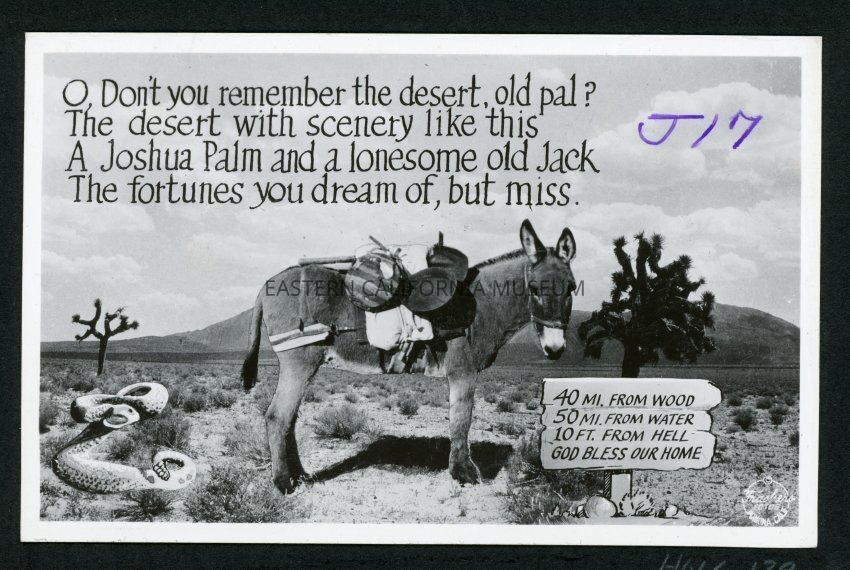 O, Don't you remember the desert, old pal?
The desert with scenery like this
A Joshua Palm and a lonesome old Jack
The fortunes you dream of, but miss.
J17
EASTERN CALIFORNIA MUSEUM
40 MI. FROM WOOD
50 MI. FROM WATER
10 FT. FROM HELL
GOD BLESS OUR HOME
Frashers
POMONA, CAL.